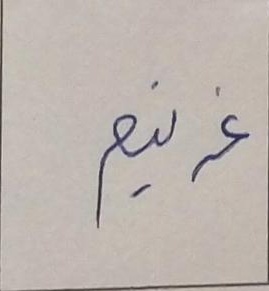 غرنيم